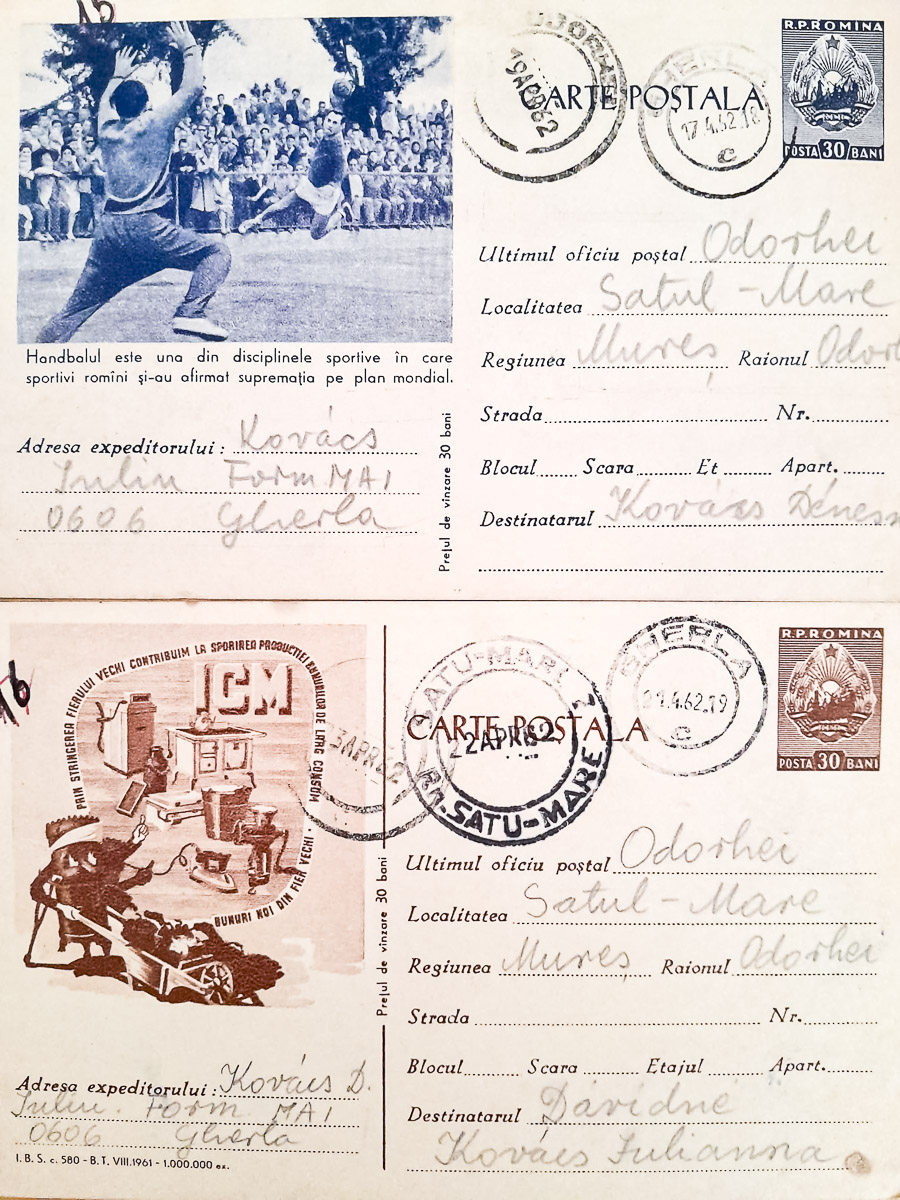 15
CARTE POȘTALA
ODORHEI
19APR62
GHERLA
17.4.62.18
c
R.P.ROMINA
POSTA 30 BANI
Handbalul este una din disciplinele sportive în care
sportivi romîni și-au afirmat suprematia pe plan mondial.
Adresa expeditorului: Kovács
Iuliu Form MAI
0606 Gherla
Prețul de vînzare 30 bani
Ultimul oficiu poștal Odorhei
Localitatea Satul-Mare
Regiunea Mureș Raionul Odorh
Strada Nr.
Blocul Scara Et Apart.
Destinatarul Kovács Dénesn
16
PRIN STRINGEREA FIERULUI VECHI CONTRIBUIM LA SPORIREA PRODUCTIEI BUNURILOR DE LARG CONSUM
ICM
BUNURI NOI DIN FIER VECHI
Adresa expeditorului: Kovács D.
Iuliu. Form MAI
0606 Gherla
I.B.S. c. 580 - B.T. VIII.1961 - 1.000.000 ex.
Prețul de vînzare 30 bani
CARTE POSTALA
3APR62
SATU-MARE 2
22APR62
RM.SATU-MARE
GHERLA
4.62.19
c
R.P.ROMINA
POSTA 30 BANI
Ultimul oficiu poștal Odorhei
Localitatea Satul-Mare
Regiunea Mureș Raionul Odorhei
Strada Nr.
Blocul Scara Etajul Apart.
Destinatarul Dávidné
Kovács Iulianna